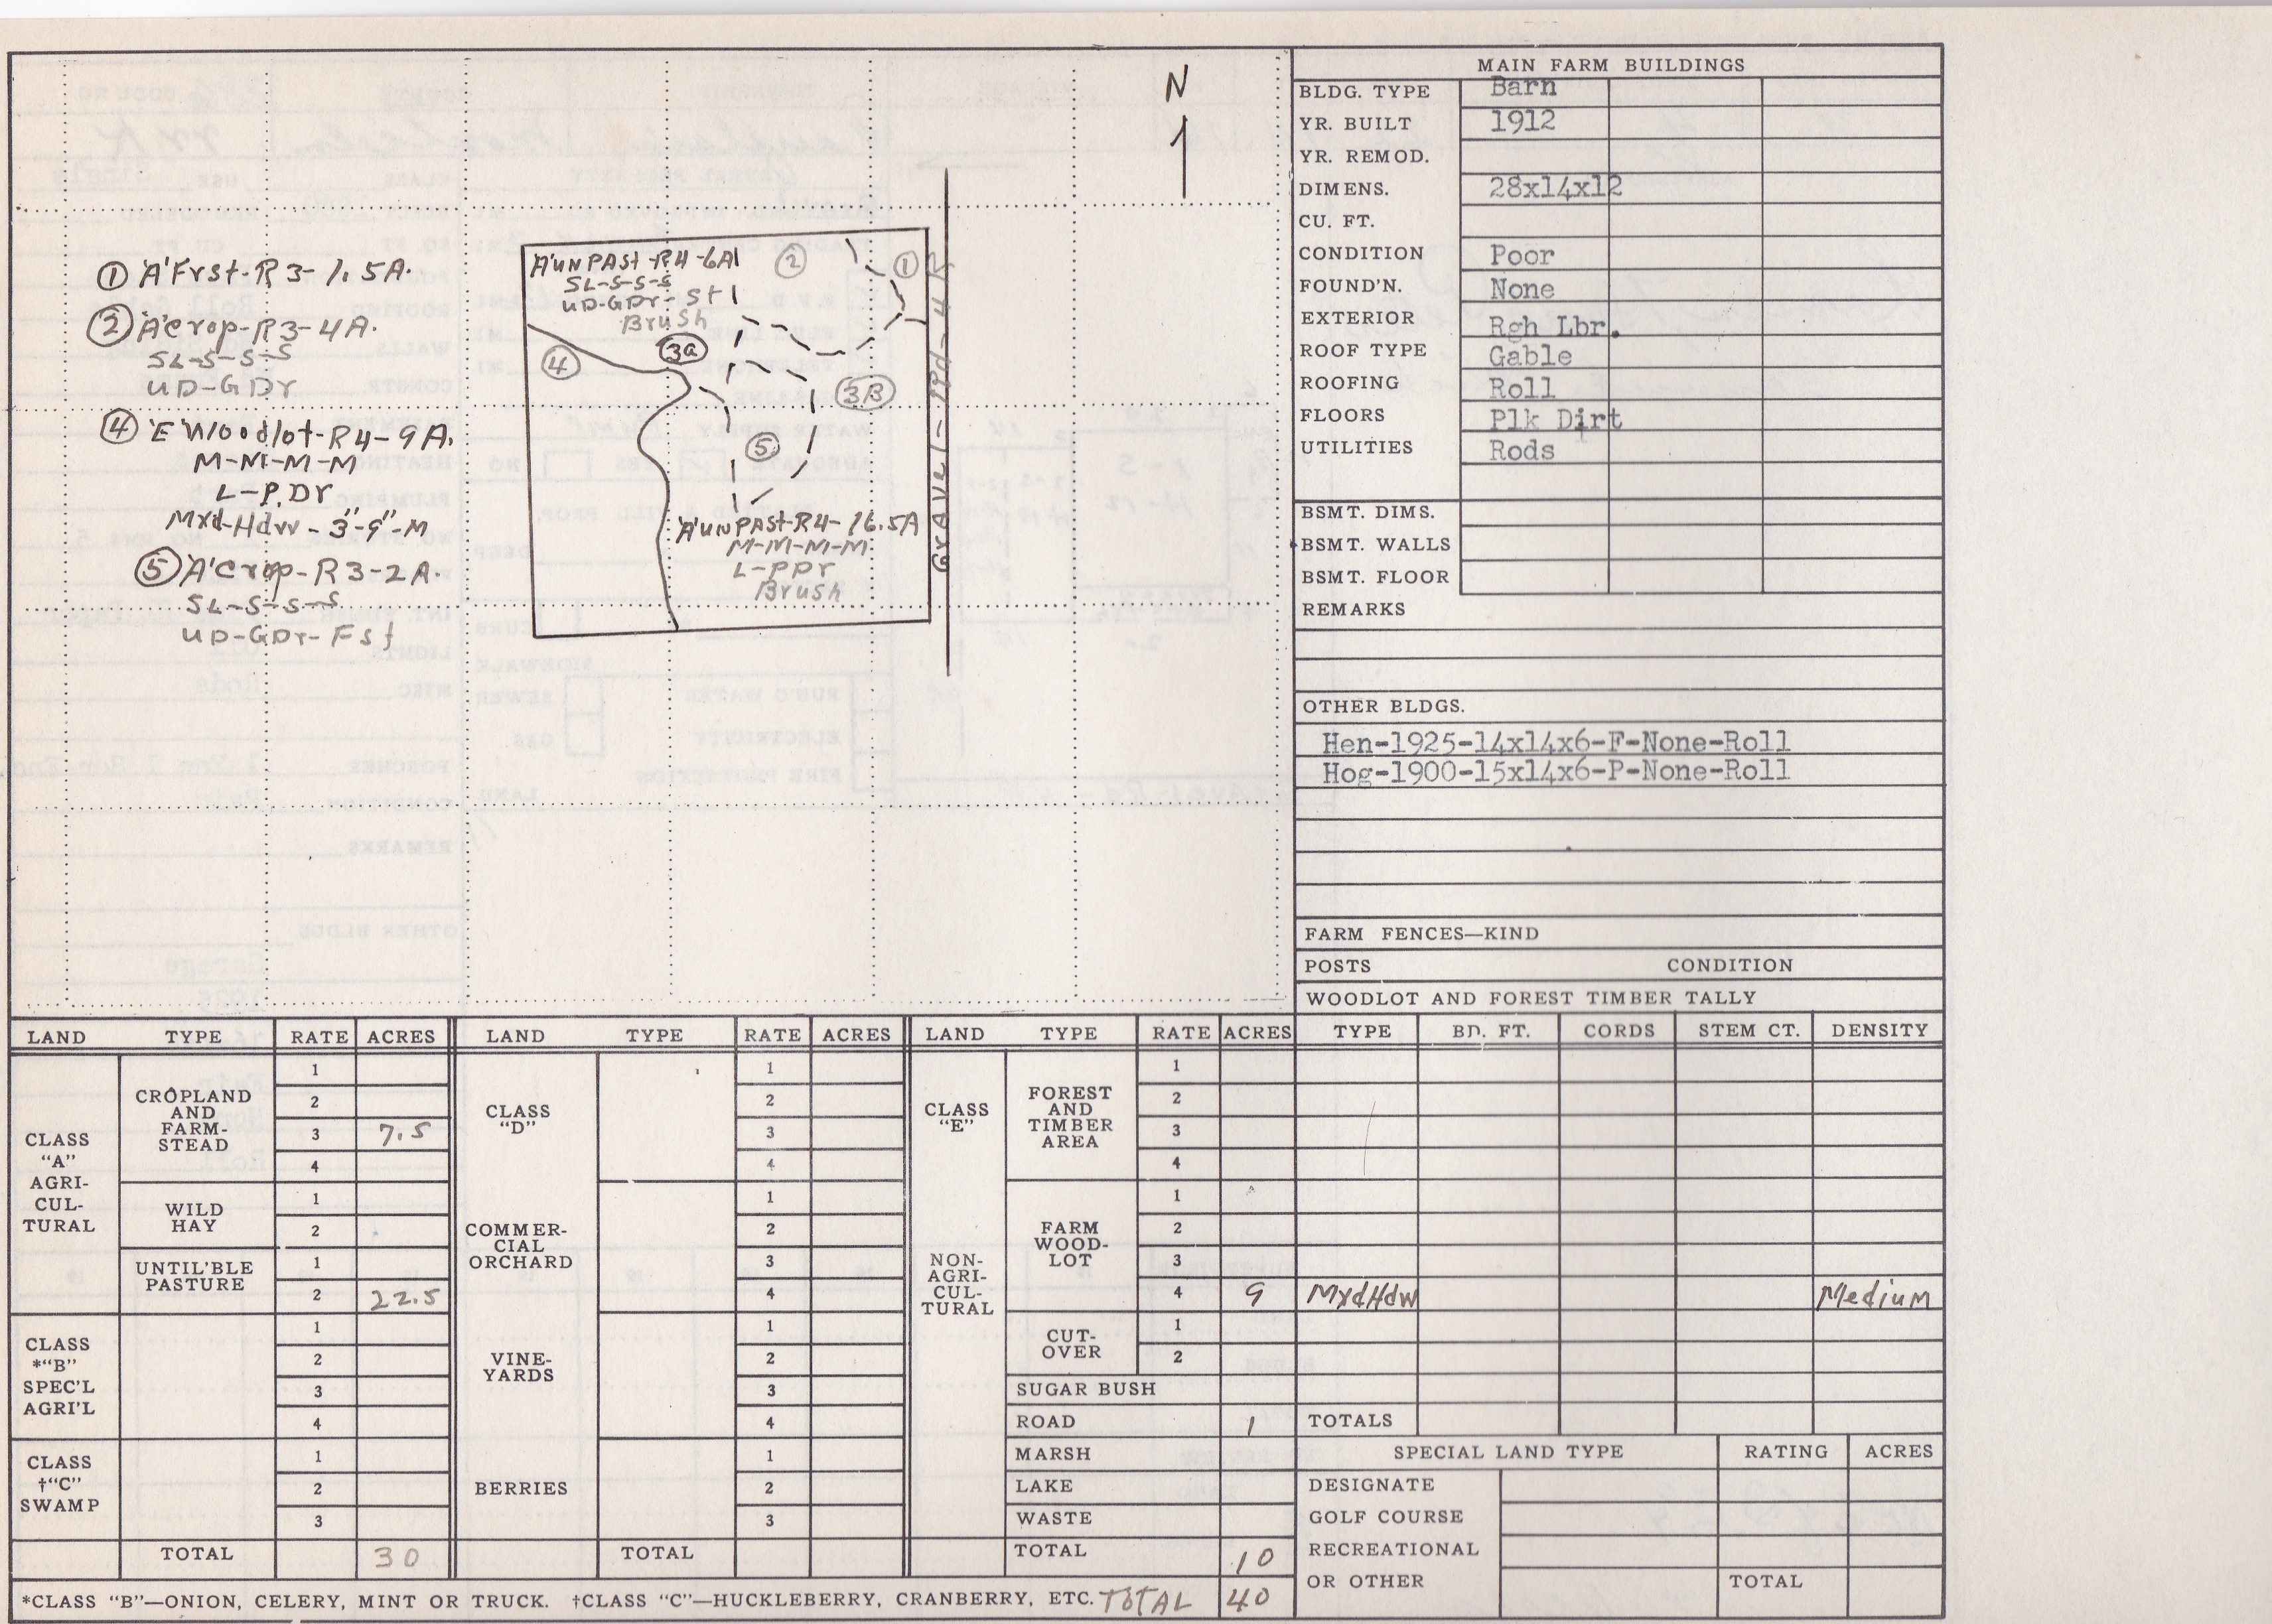 N
① 'A' Frst-R3-1.5A.
② 'A' Crop-R3-4A.
SL-S-S-S
UD-GDr
④ 'E' Woodlot-R4-9A.
M-M-M-M
L-P.Dr
Mxd-Hdw-3"-9"-M
⑤ 'A' Crop-R3-2A.
SL-S-S-S
UD-GDr-Fst
'A' UNPAST-R4-6A
SL-S-S-S
UD-GDr-St
Brush
②
①
3a
④
3B
⑤
'A' UNPAST-R4-16.5A
M-M-M-M
L-PDr
Brush
Gravel-Rd-4R
MAIN FARM BUILDINGS
BLDG. TYPE Barn
YR. BUILT 1912
YR. REMOD.
DIMENS. 28x14x12
CU. FT.
CONDITION Poor
FOUND'N. None
EXTERIOR Rgh Lbr.
ROOF TYPE Gable
ROOFING Roll
FLOORS Plk Dirt
UTILITIES Rods
BSMT. DIMS.
BSMT. WALLS
BSMT. FLOOR
REMARKS
OTHER BLDGS.
Hen-1925-14x14x6-F-None-Roll
Hog-1900-15x14x6-P-None-Roll
FARM FENCES—KIND
POSTS CONDITION
WOODLOT AND FOREST TIMBER TALLY
LAND TYPE RATE ACRES LAND TYPE RATE ACRES LAND TYPE RATE ACRES TYPE BD. FT. CORDS STEM CT. DENSITY
CLASS
"A"
AGRI-
CUL-
TURAL
CROPLAND
AND
FARM-
STEAD
1
2
3 7.5
4
WILD
HAY
1
2
UNTIL'BLE
PASTURE
1
2 22.5
CLASS
*"B"
SPEC'L
AGRI'L
1
2
3
4
CLASS
†"C"
SWAMP
1
2
3
TOTAL 30
CLASS
"D"
1
2
3
4
COMMER-
CIAL
ORCHARD
1
2
3
4
VINE-
YARDS
1
2
3
4
BERRIES
1
2
3
TOTAL
CLASS
"E"
NON-
AGRI-
CUL-
TURAL
FOREST
AND
TIMBER
AREA
1
2
3
4
FARM
WOOD-
LOT
1
2
3
4 9 MxdHdw Medium
CUT-
OVER
1
2
SUGAR BUSH
ROAD 1
MARSH
LAKE
WASTE
TOTAL 10
TOTALS
SPECIAL LAND TYPE RATING ACRES
DESIGNATE
GOLF COURSE
RECREATIONAL
OR OTHER TOTAL
*CLASS "B"—ONION, CELERY, MINT OR TRUCK. †CLASS "C"—HUCKLEBERRY, CRANBERRY, ETC. TOTAL 40